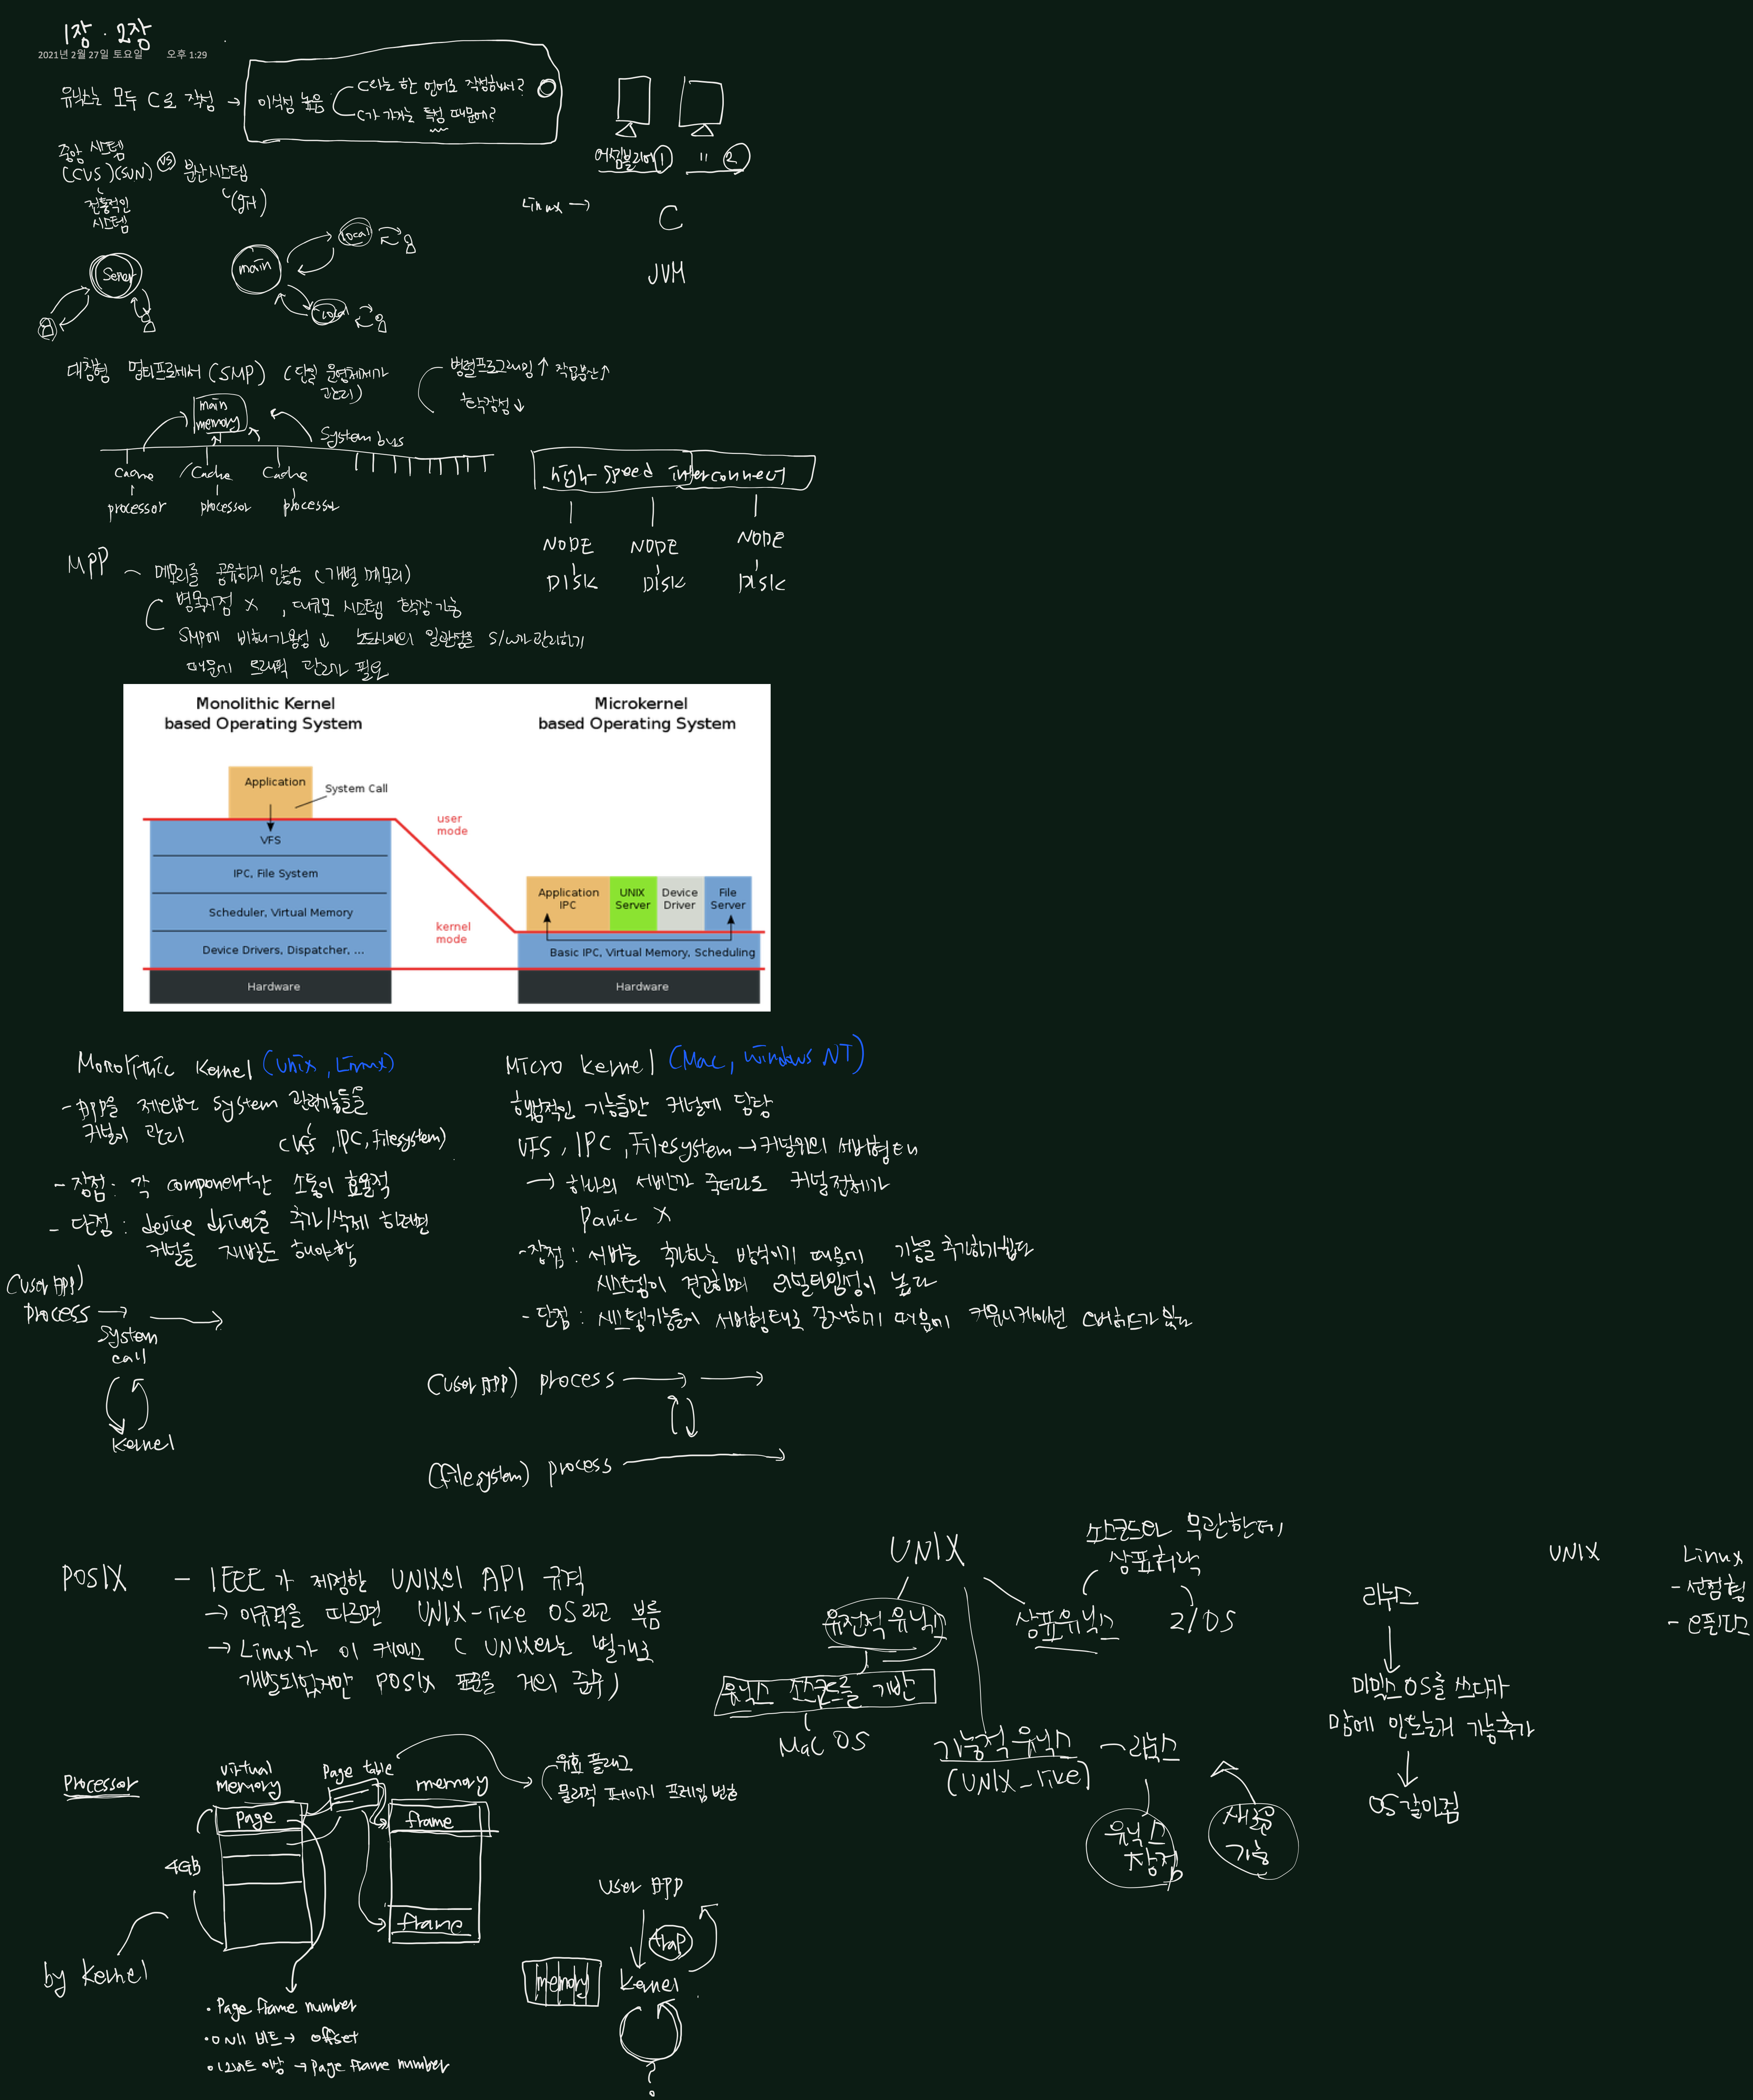 1장 · 2장
2021년 2월 27일 토요일 오후 1:29
유닉스는 모두 C로 작성 →
이식성 높음
C라는 한 언어로 작성해서?
C가 가지는 특성 때문에?
어셈블리어 ① 〃 ②
Linux →
C
JVM
중앙 시스템
(CVS)(SVN) vs 분산시스템
(git)
전통적인
시스템
Server
main
local
local
대칭형 멀티프로세서 (SMP) (단일 운영체제가
관리)
병렬프로그래밍 ↑ 작업분산 ↑
확장성 ↓
main
memory
System bus
Cache Cache Cache
processor processor processor
high-speed interconnect
NODE NODE NODE
DISK DISK DISK
MPP - 메모리를 공유하지 않음 (개별 메모리)
병목지점 X, 대규모 시스템 확장 가능
SMP에 비해 가용성 ↓ 노드사이의 일관점을 S/W가 관리하기
때문에 트래픽 관리가 필요
Monolithic Kernel
based Operating System
Microkernel
based Operating System
Application
System Call
user
mode
VFS
IPC, File System
Scheduler, Virtual Memory
Device Drivers, Dispatcher, ...
Hardware
kernel
mode
Application
IPC
UNIX
Server
Device
Driver
File
Server
Basic IPC, Virtual Memory, Scheduling
Hardware
Monolithic Kernel (Unix, Linux)
- App을 제외하는 system 관련기능들을
커널이 관리
(VFS, IPC, Filesystem)
- 장점: 각 component간 소통이 효율적
- 단점: device driver을 추가/삭제 하려면
커널을 재빌드 해야함
(User APP)
process →
System
call
Kernel
Micro kernel (Mac, windows NT)
핵심적인 기능들만 커널에 담당
VFS, IPC, Filesystem → 커널위의 서버형태
→ 하나의 서버가 죽더라도 커널전체가
Panic X
- 장점: 서버를 추가하는 방식이기 때문에 기능을 추가하기쉽다
시스템이 견고하며 리얼타임성이 높다
- 단점: 시스템기능들이 서버형태로 존재하기 때문에 커뮤니케이션 오버헤드가 있다
(User APP) process
(filesystem) process
POSIX - IEEE가 제정한 UNIX의 API 규격
→ 이규격을 따르면 UNIX-like OS라고 부름
→ Linux가 이 케이스 ( UNIX와는 별개로
개발되었지만 POSIX 표준을 거의 준수)
UNIX
소스코드와 무관한데,
상표허락
유전적 유닉스
상표유닉스
Z/OS
유닉스 소스코드를 기반
Mac OS
기능적 유닉스
(UNIX-like)
- 리눅스
유닉스
장점
새로운
기능
리누스
미닉스 OS를 쓰다가
맘에 안드는거 기능추가
OS 같아짐
UNIX
Linux
- 선점형
- 오픈소스
Processor
virtual
memory
Page table
memory
page
frame
frame
4GB
by kernel
유효 플래그
물리적 페이지 프레임 번호
· Page frame number
· 0~11 비트 → offset
· 12비트 이상 → page frame number
User APP
trap
memory
kernel
?